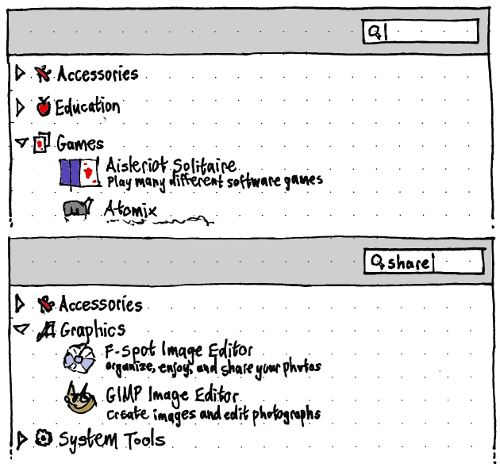 Accessories
Education
Games
Aisleriot Solitaire
Play many different software games
Atomix
share
Accessories
Graphics
F-Spot Image Editor
organize, enjoy, and share your photos
GIMP Image Editor
create images and edit photographs
System Tools